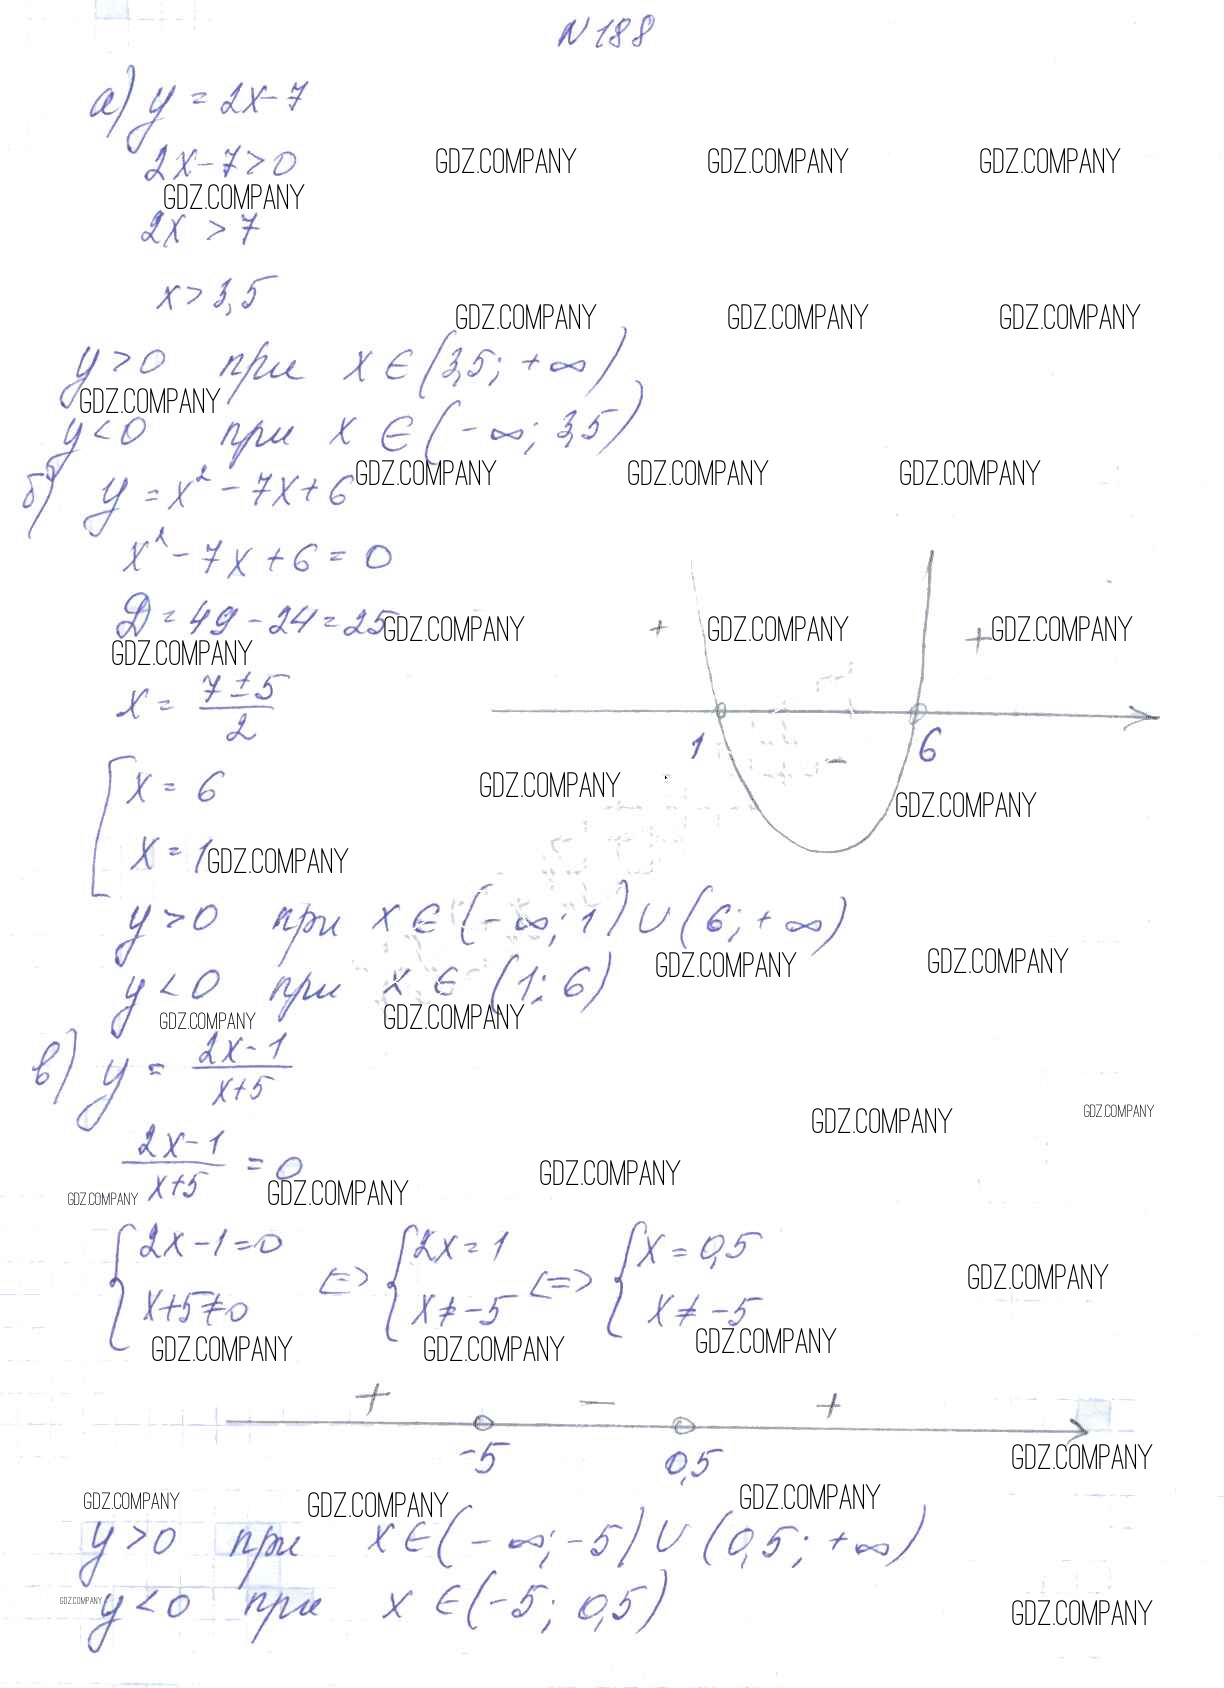 N 188
а) y = 2x - 7
2x - 7 > 0
GDZ.COMPANY GDZ.COMPANY GDZ.COMPANY
GDZ.COMPANY
2x > 7
x > 3,5
GDZ.COMPANY GDZ.COMPANY GDZ.COMPANY
y > 0 при x ∈ (3,5; +∞)
GDZ.COMPANY
y < 0 при x ∈ (-∞; 3,5)
GDZ.COMPANY GDZ.COMPANY GDZ.COMPANY
б) y = x² - 7x + 6
x² - 7x + 6 = 0
D = 49 - 24 = 25
GDZ.COMPANY GDZ.COMPANY GDZ.COMPANY
+ +
GDZ.COMPANY
x = (7 ± 5)/2
1 - 6
x = 6
GDZ.COMPANY GDZ.COMPANY
x = 1
GDZ.COMPANY
y > 0 при x ∈ (-∞; 1) ∪ (6; +∞)
GDZ.COMPANY GDZ.COMPANY
y < 0 при x ∈ (1; 6)
GDZ.COMPANY GDZ.COMPANY
в) y = (2x - 1)/(x + 5)
GDZ.COMPANY GDZ.COMPANY
(2x - 1)/(x + 5) = 0
GDZ.COMPANY GDZ.COMPANY GDZ.COMPANY
{2x - 1 = 0 <=> {2x = 1 <=> {x = 0,5
x + 5 ≠ 0 x ≠ -5 x ≠ -5
GDZ.COMPANY
GDZ.COMPANY GDZ.COMPANY GDZ.COMPANY
+ - +
-5 0,5
GDZ.COMPANY
GDZ.COMPANY GDZ.COMPANY GDZ.COMPANY
y > 0 при x ∈ (-∞; -5) ∪ (0,5; +∞)
GDZ.COMPANY
y < 0 при x ∈ (-5; 0,5)
GDZ.COMPANY